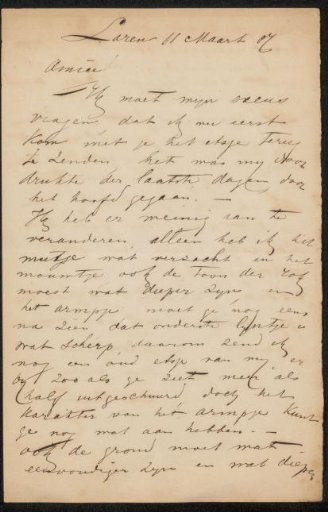 Laren 11 Maart 07
Amice!
Ik moet mijn excus
vragen dat ik nu eerst
kom met je het etsje terug
te zenden het was mij door
drukte der laatste dagen door
het hoofd gegaan. —
Ik heb er weinig aan te
veranderen, alleen heb ik het
mutsje wat verzacht en het
mouwtje ook de toon der rok
moest wat dieper zijn en
het armpje moet je nog eens
na zien, dat onderste lijntje is
wat scherp, daarom zend ik
nog een oud etsje van mij er
bij zoo als je ziet meer als
half uitgeschuurd, doch het
karakter van het armpje kunt
ge nog wat aan hebben. —
ook de grond moet wat
eenvoudiger zijn en wat dieper